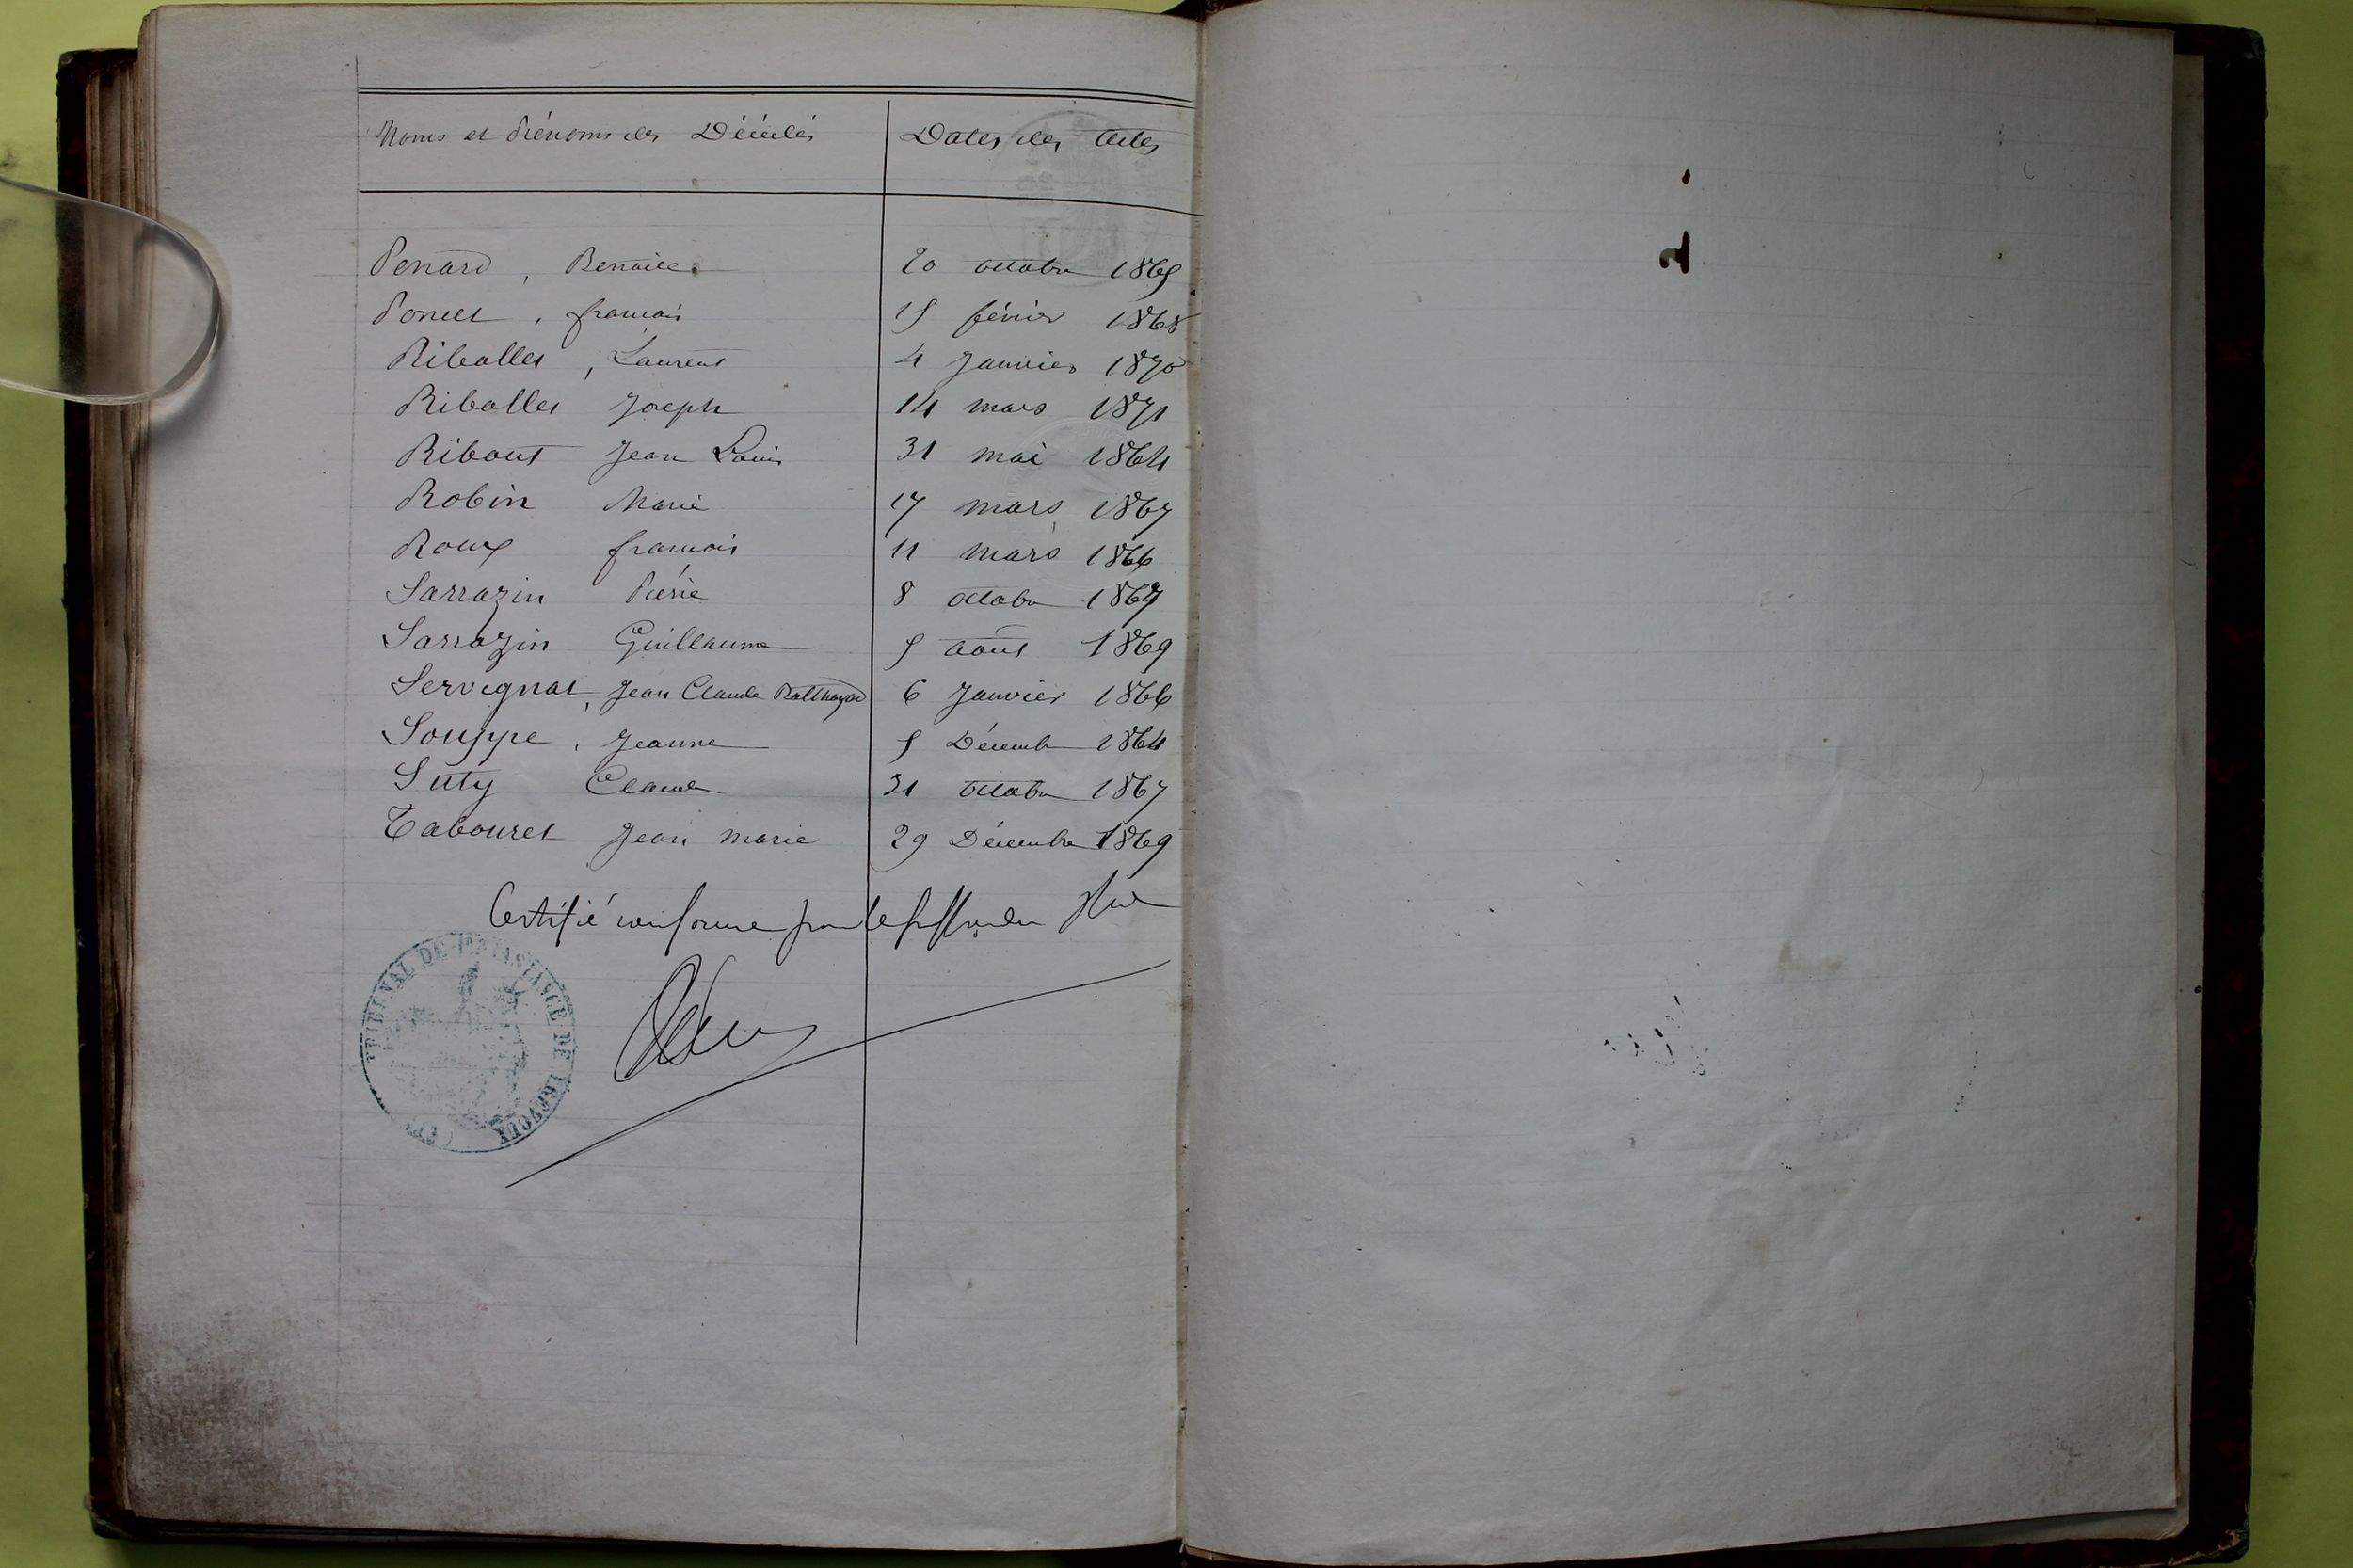 Noms et Prénoms des Décédés Dates des Actes
Penard, Benoite 20 octobre 1865
Poncet, françois 15 février 1868
Ribollet, Laurent 4 Janvier 1870
Ribollet Joseph 14 mars 1871
Ribout Jean Louis 31 mai 1864
Robin Marie 17 mars 1867
Roux françois 11 mars 1866
Sarrazin Pierre 8 octobre 1867
Sarrazin Guillaume 5 août 1869
Servignat, Jean Claude Balthazar 6 Janvier 1866
Souppe, Jeanne 5 Décembre 1864
Suty Claude 31 octobre 1867
Tabouret Jean marie 29 Décembre 1869
Certifié conforme par le
TRIBUNAL DE 1RE INSTANCE DE TREVOUX (AIN)